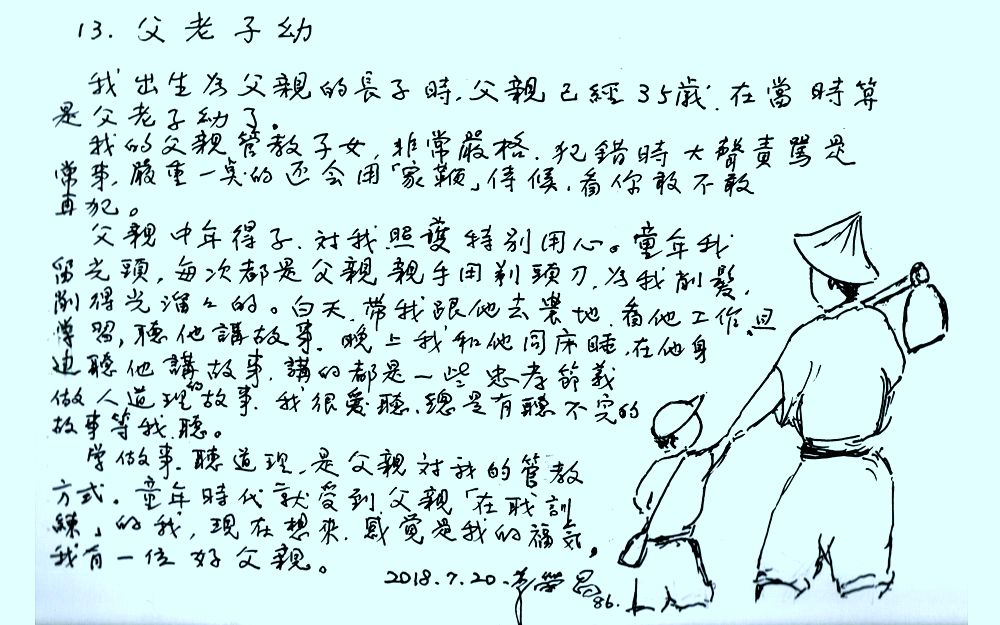 13. 父老子幼
我出生為父親的長子時,父親已經35歲,在當時算
是父老子幼了。
我的父親管教子女,非常嚴格.犯錯時大聲責罵是
常事,嚴重一點的還會用「家鞭」侍候.看你敢不敢
再犯。
父親中年得子.対我照護特別用心。童年我
留光頭,每次都是父親親手用剃頭刀,為我削髮,
削得光溜々的。白天,帶我跟他去農地.看他工作,且
學習,聽他講故事.晚上我和他同床睡,在他身
边聽他講故事.講的都是一些忠孝節義
做人道理的故事.我很愛聽.總是有聽不完的
故事等我聽。
学做事.聽道理,是父親対我的管教
方式。童年時代就受到父親「在職訓
練」的我,現在想來.感覚是我的福気。
我有一位好父親。
2018.7.20.榮昌
86.